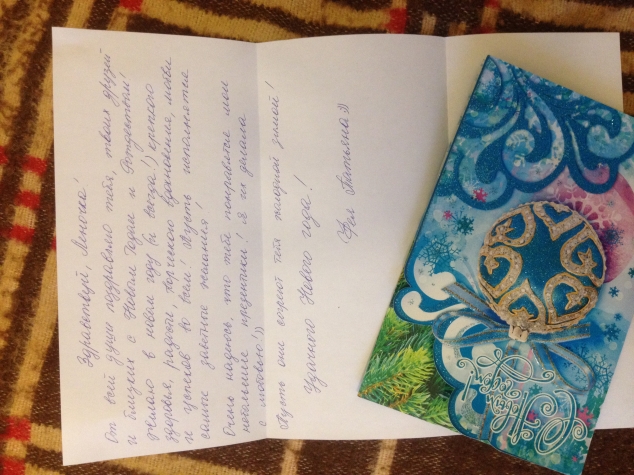 Здравствуй, Линочка!
От всей души поздравляю тебя, твоих друзей
и близких с Новым Годом и Рождеством!
Желаю в новом году (и всегда!) крепкого
здоровья, радости, творческого вдохновения, любви
и успехов во всём. Пусть исполнятся
самые заветные желания!
Очень надеюсь, что тебе понравятся мои
небольшие презентики! Я их делала
с любовью!))
Пусть они согреют тебя холодной зимой!
Удачного Нового года!
Татьяна))
С Новым годом!